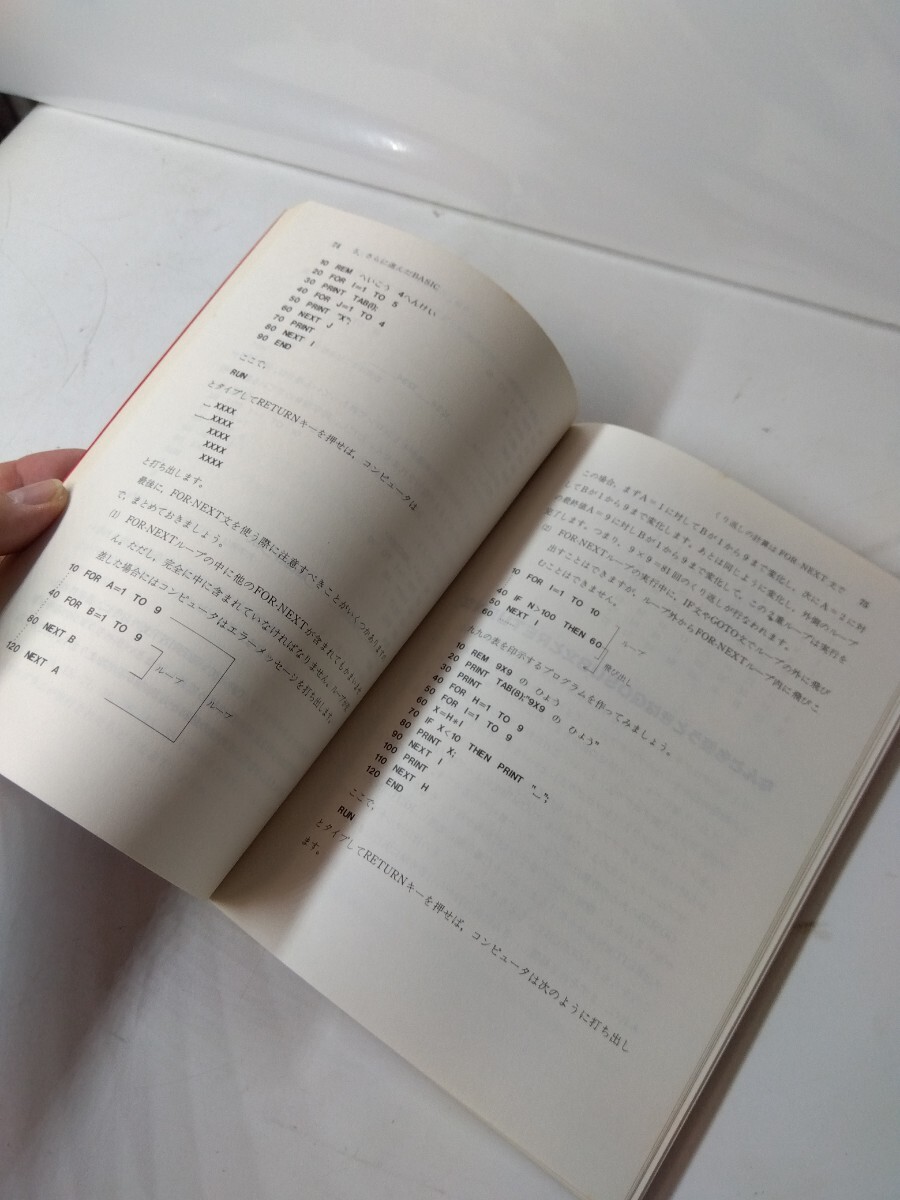 24 2. さらに進んだBASIC
10 REM へいこう 4へんけい
20 FOR I=1 TO 5
30 PRINT TAB(I);
40 FOR J=1 TO 4
50 PRINT "X";
60 NEXT J
70 PRINT
80 NEXT I
90 END
ここで,
RUN
とタイプしてRETURNキーを押せば, コンピュータは
XXXX
XXXX
XXXX
XXXX
XXXX
と打ち出します.
最後に, FOR-NEXT文を使う際に注意すべきことがいくつかありますの
で, まとめておきましょう.
(1) FOR-NEXTループの中に他のFOR-NEXTが含まれてもかまいませ
ん. ただし, 完全に中に含まれていなければなりません. ループが交
差した場合にはコンピュータはエラーメッセージを打ち出します.
10 FOR A=1 TO 9
40 FOR B=1 TO 9
60 NEXT B
120 NEXT A
ループ
ループ
くり返しの計算は FOR NEXT 文で 25
この場合, まずA=1に対してBが1から9まで変化し, 次にA=2に対
してBが1から9まで変化します. あとは同じように変化し, 外側のループ
の最終値A=9に対しBが1から9まで変化して, この2重ループは実行を
完了します. つまり, 9×9=81回のくり返しが行なわれます.
(2) FOR-NEXTループの実行中に, IF文やGOTO文でループの外に飛び
出すことはできますが, ループ外からFOR-NEXTループ内に飛びこ
むことはできません.
10 FOR I=1 TO 10
40 IF N>100 THEN 60
50 NEXT I
60
ループ
飛び出し
たたの表を印字するプログラムを作ってみましょう.
10 REM 9X9 の ひょう
20 PRINT TAB(8);"9X9 の ひょう"
30 PRINT
40 FOR H=1 TO 9
50 FOR I=1 TO 9
60 X=H*I
70 IF X<10 THEN PRINT "_";
80 PRINT X;
90 NEXT I
100 PRINT
110 NEXT H
120 END
ここで,
RUN
とタイプしてRETURNキーを押せば, コンピュータは次のように打ち出し
ます.